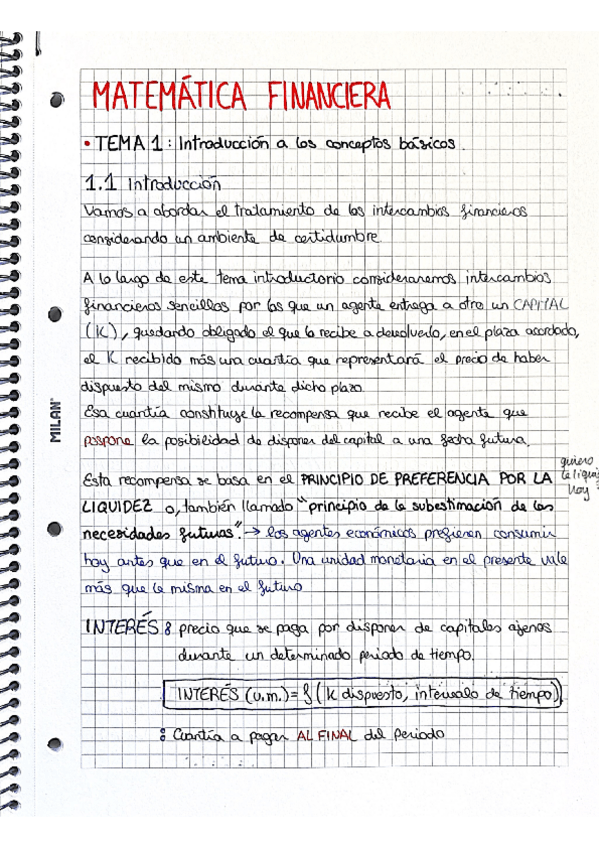 MATEMÁTICA FINANCIERA
• TEMA 1: Introducción a los conceptos básicos.
1.1 Introducción
Vamos a abordar el tratamiento de los intercambios financieros
considerando un ambiente de certidumbre.
A lo largo de este tema introductorio consideraremos intercambios
financieros sencillos por los que un agente entrega a otro un CAPITAL
(K), quedando obligado el que lo recibe a devolverlo, en el plazo acordado,
el K recibido más una cuantía que representará el precio de haber
dispuesto del mismo durante dicho plazo.
Esa cuantía constituye la recompensa que recibe el agente que
pospone la posibilidad de disponer del capital a una fecha futura.
quiero
la liqui
hoy
Esta recompensa se basa en el PRINCIPIO DE PREFERENCIA POR LA
LIQUIDEZ o, también llamado "principio de la subestimación de las
necesidades futuras". → los agentes económicos prefieren consumir
hoy antes que en el futuro. Una unidad monetaria en el presente vale
más que la misma en el futuro
INTERÉS : precio que se paga por disponer de capitales ajenos
durante un determinado periodo de tiempo.
INTERÉS (u.m.) = f (K dispuesto, intervalo de tiempo)
: Cuantía a pagar AL FINAL del periodo
MILAN